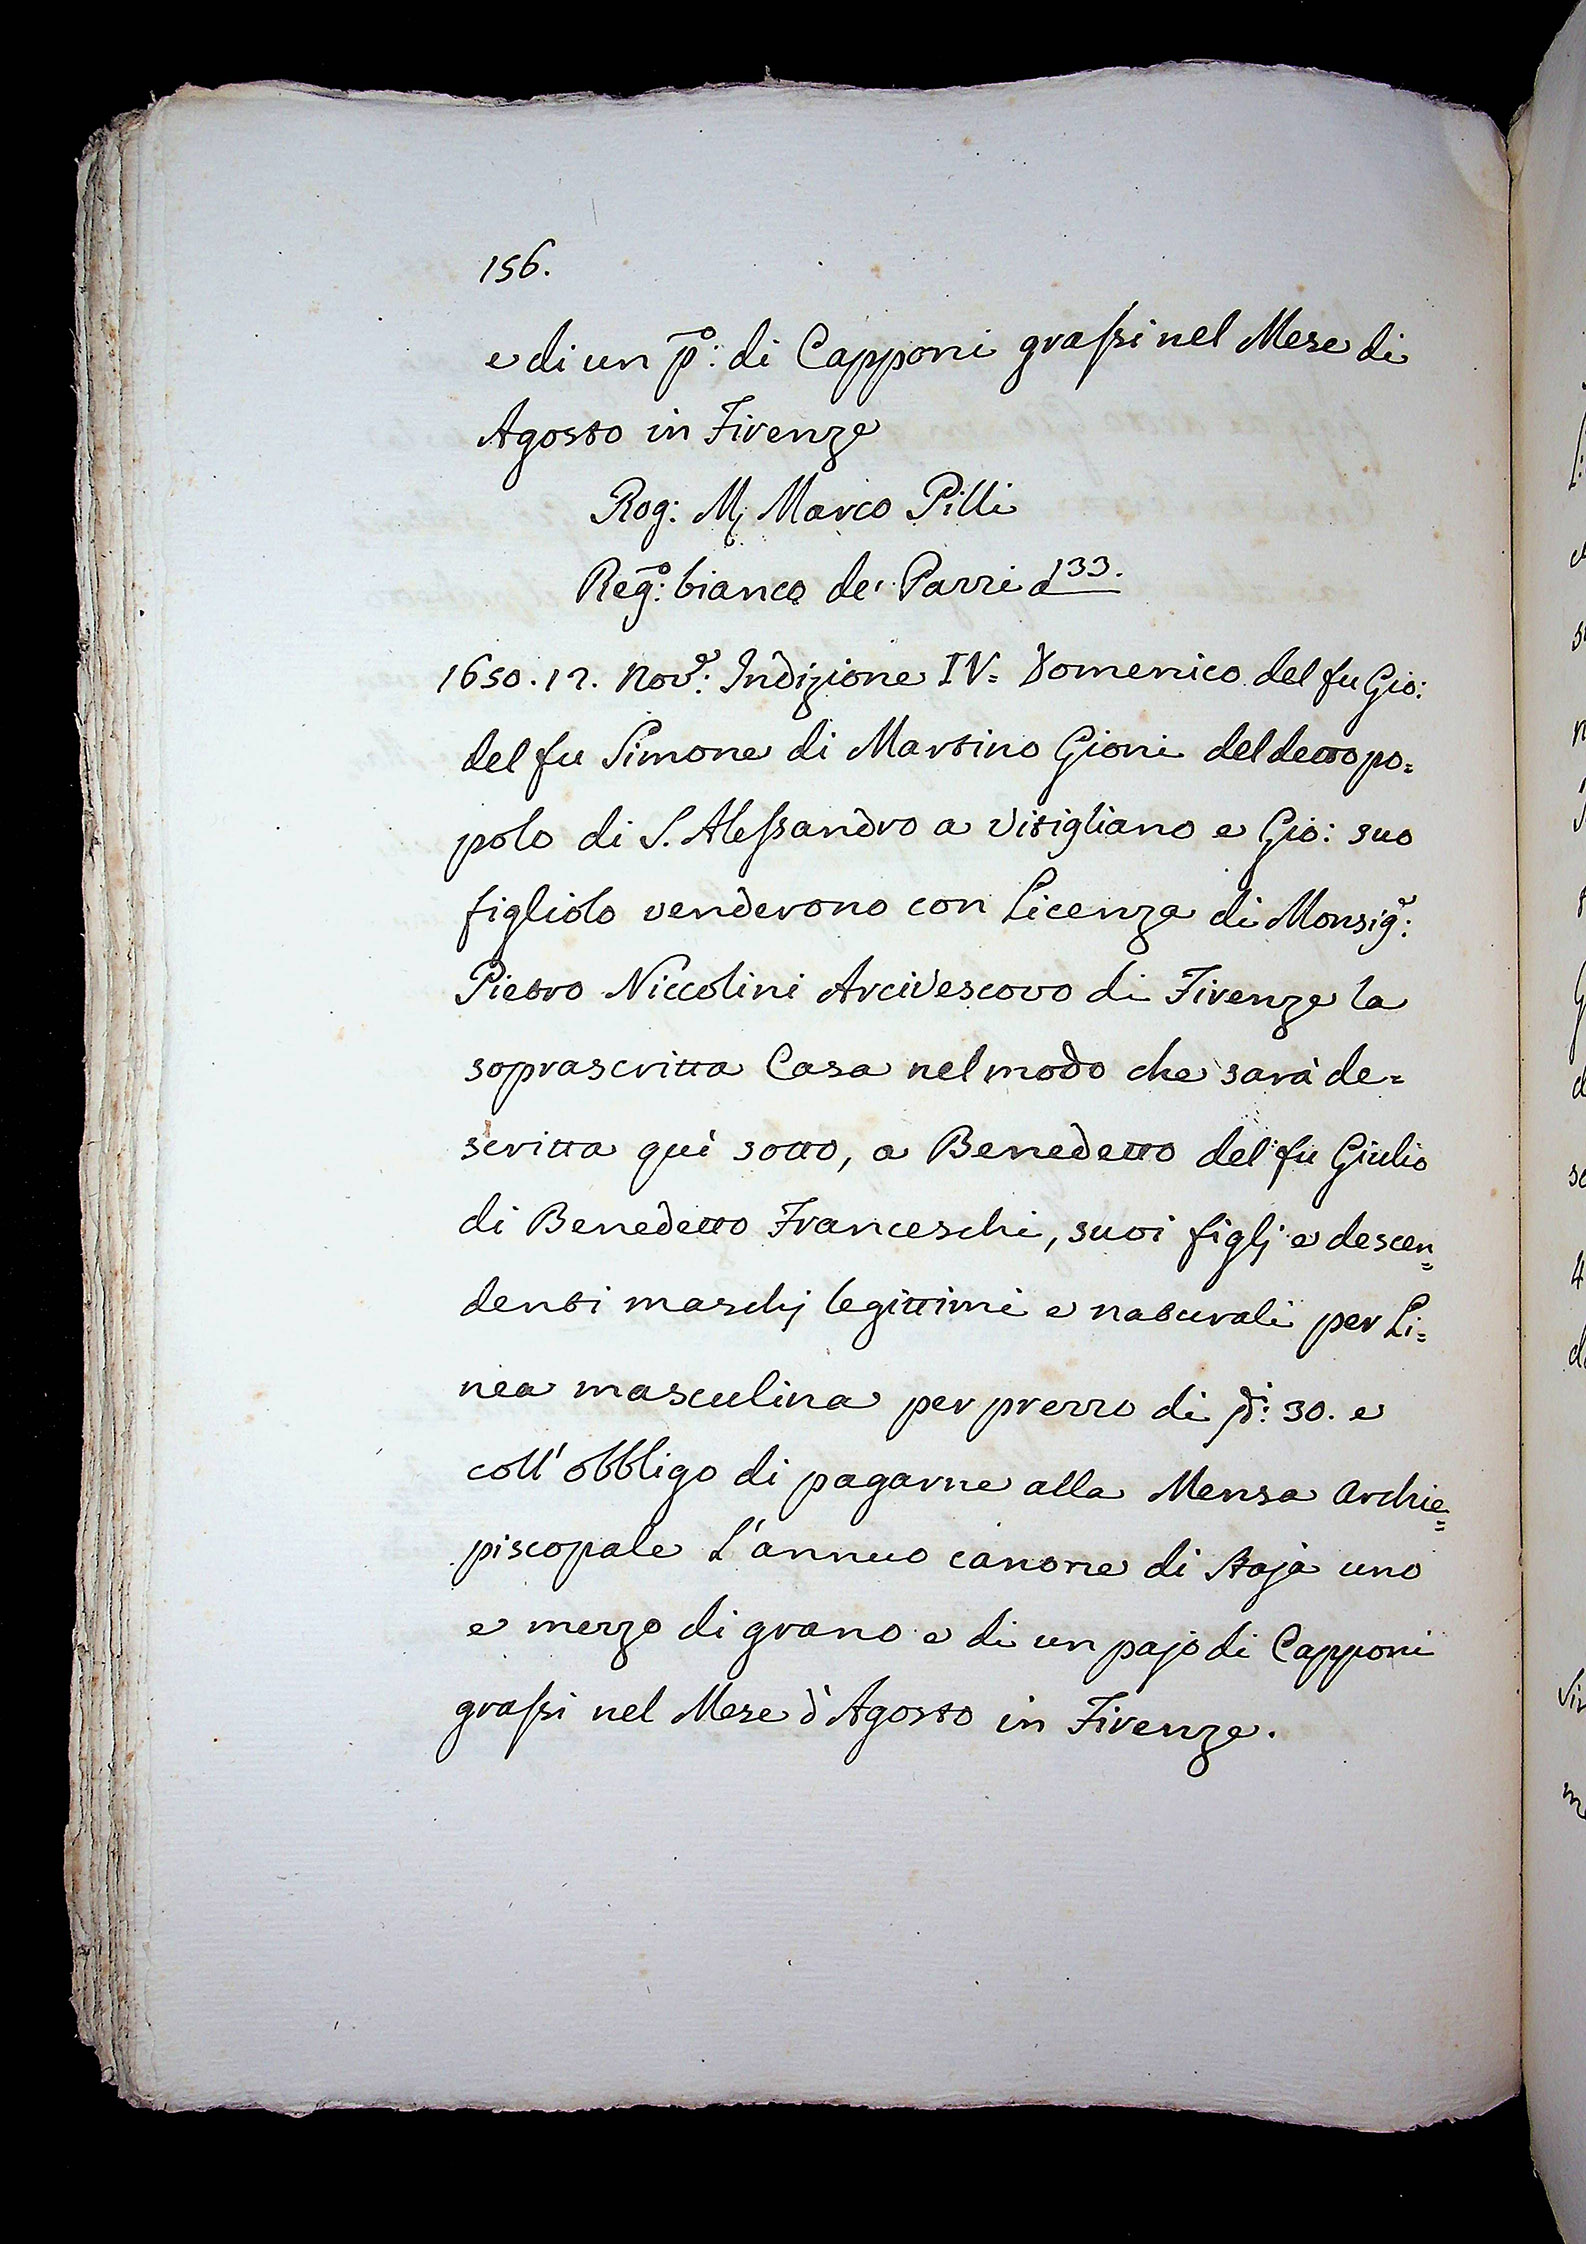 156.
e di un p̄o: di Capponi graſsi nel Mese di
Agosto in Firenze
Rog: M. Marco Pilli
Reg̃o: bianco de' Pazzi a 133.
1650. 12. Nov.e: Indizione IV= Domenico del fu Gio:
del fu Simone di Martino Gioni del detto po=
polo di S. Aleſsandro a Vitigliano e Gio: suo
figliolo venderono con Licenza di Monsig.r:
Pietro Niccolini Arcivescovo di Firenze la
soprascritta Casa nel modo che sarà de=
scritta quì sotto, a Benedetto del fu Giulio
di Benedetto Franceschi, suoi figlj e descen=
denti maschj legittimi e naturali per Li=
nea masculina per prezzo di 30. e
coll' obbligo di pagarne alla Mensa Archie=
piscopale L'annuo canone di staja uno
e mezzo di grano e di un pajo di Capponi
graſsi nel Mese d'Agosto in Firenze.